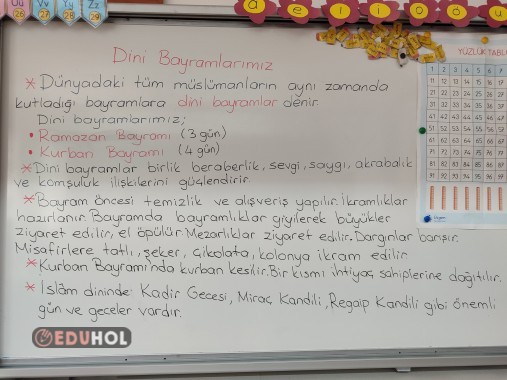 Uu Vv Yy Zz
26 27 28 29
a e ı i o ö u
YÜZLÜK TABLO
Dini Bayramlarımız
* Dünyadaki tüm müslümanların aynı zamanda
kutladığı bayramlara dini bayramlar denir.
Dini bayramlarımız;
• Ramazan Bayramı (3 gün)
• Kurban Bayramı (4 gün)
* Dini bayramlar birlik beraberlik, sevgi, saygı, akrabalık
ve komşuluk ilişkilerini güçlendirir.
* Bayram öncesi temizlik ve alışveriş yapılır. İkramlıklar
hazırlanır. Bayramda bayramlıklar giyilerek büyükler
ziyaret edilir, el öpülür. Mezarlıklar ziyaret edilir. Dargınlar barışır.
Misafirlere tatlı, şeker, çikolata, kolonya ikram edilir.
* Kurban Bayramı'nda kurban kesilir. Bir kısmı ihtiyaç sahiplerine dağıtılır.
* İslâm dininde Kadir Gecesi, Miraç Kandili, Regaip Kandili gibi önemli
gün ve geceler vardır.
EDUHOL